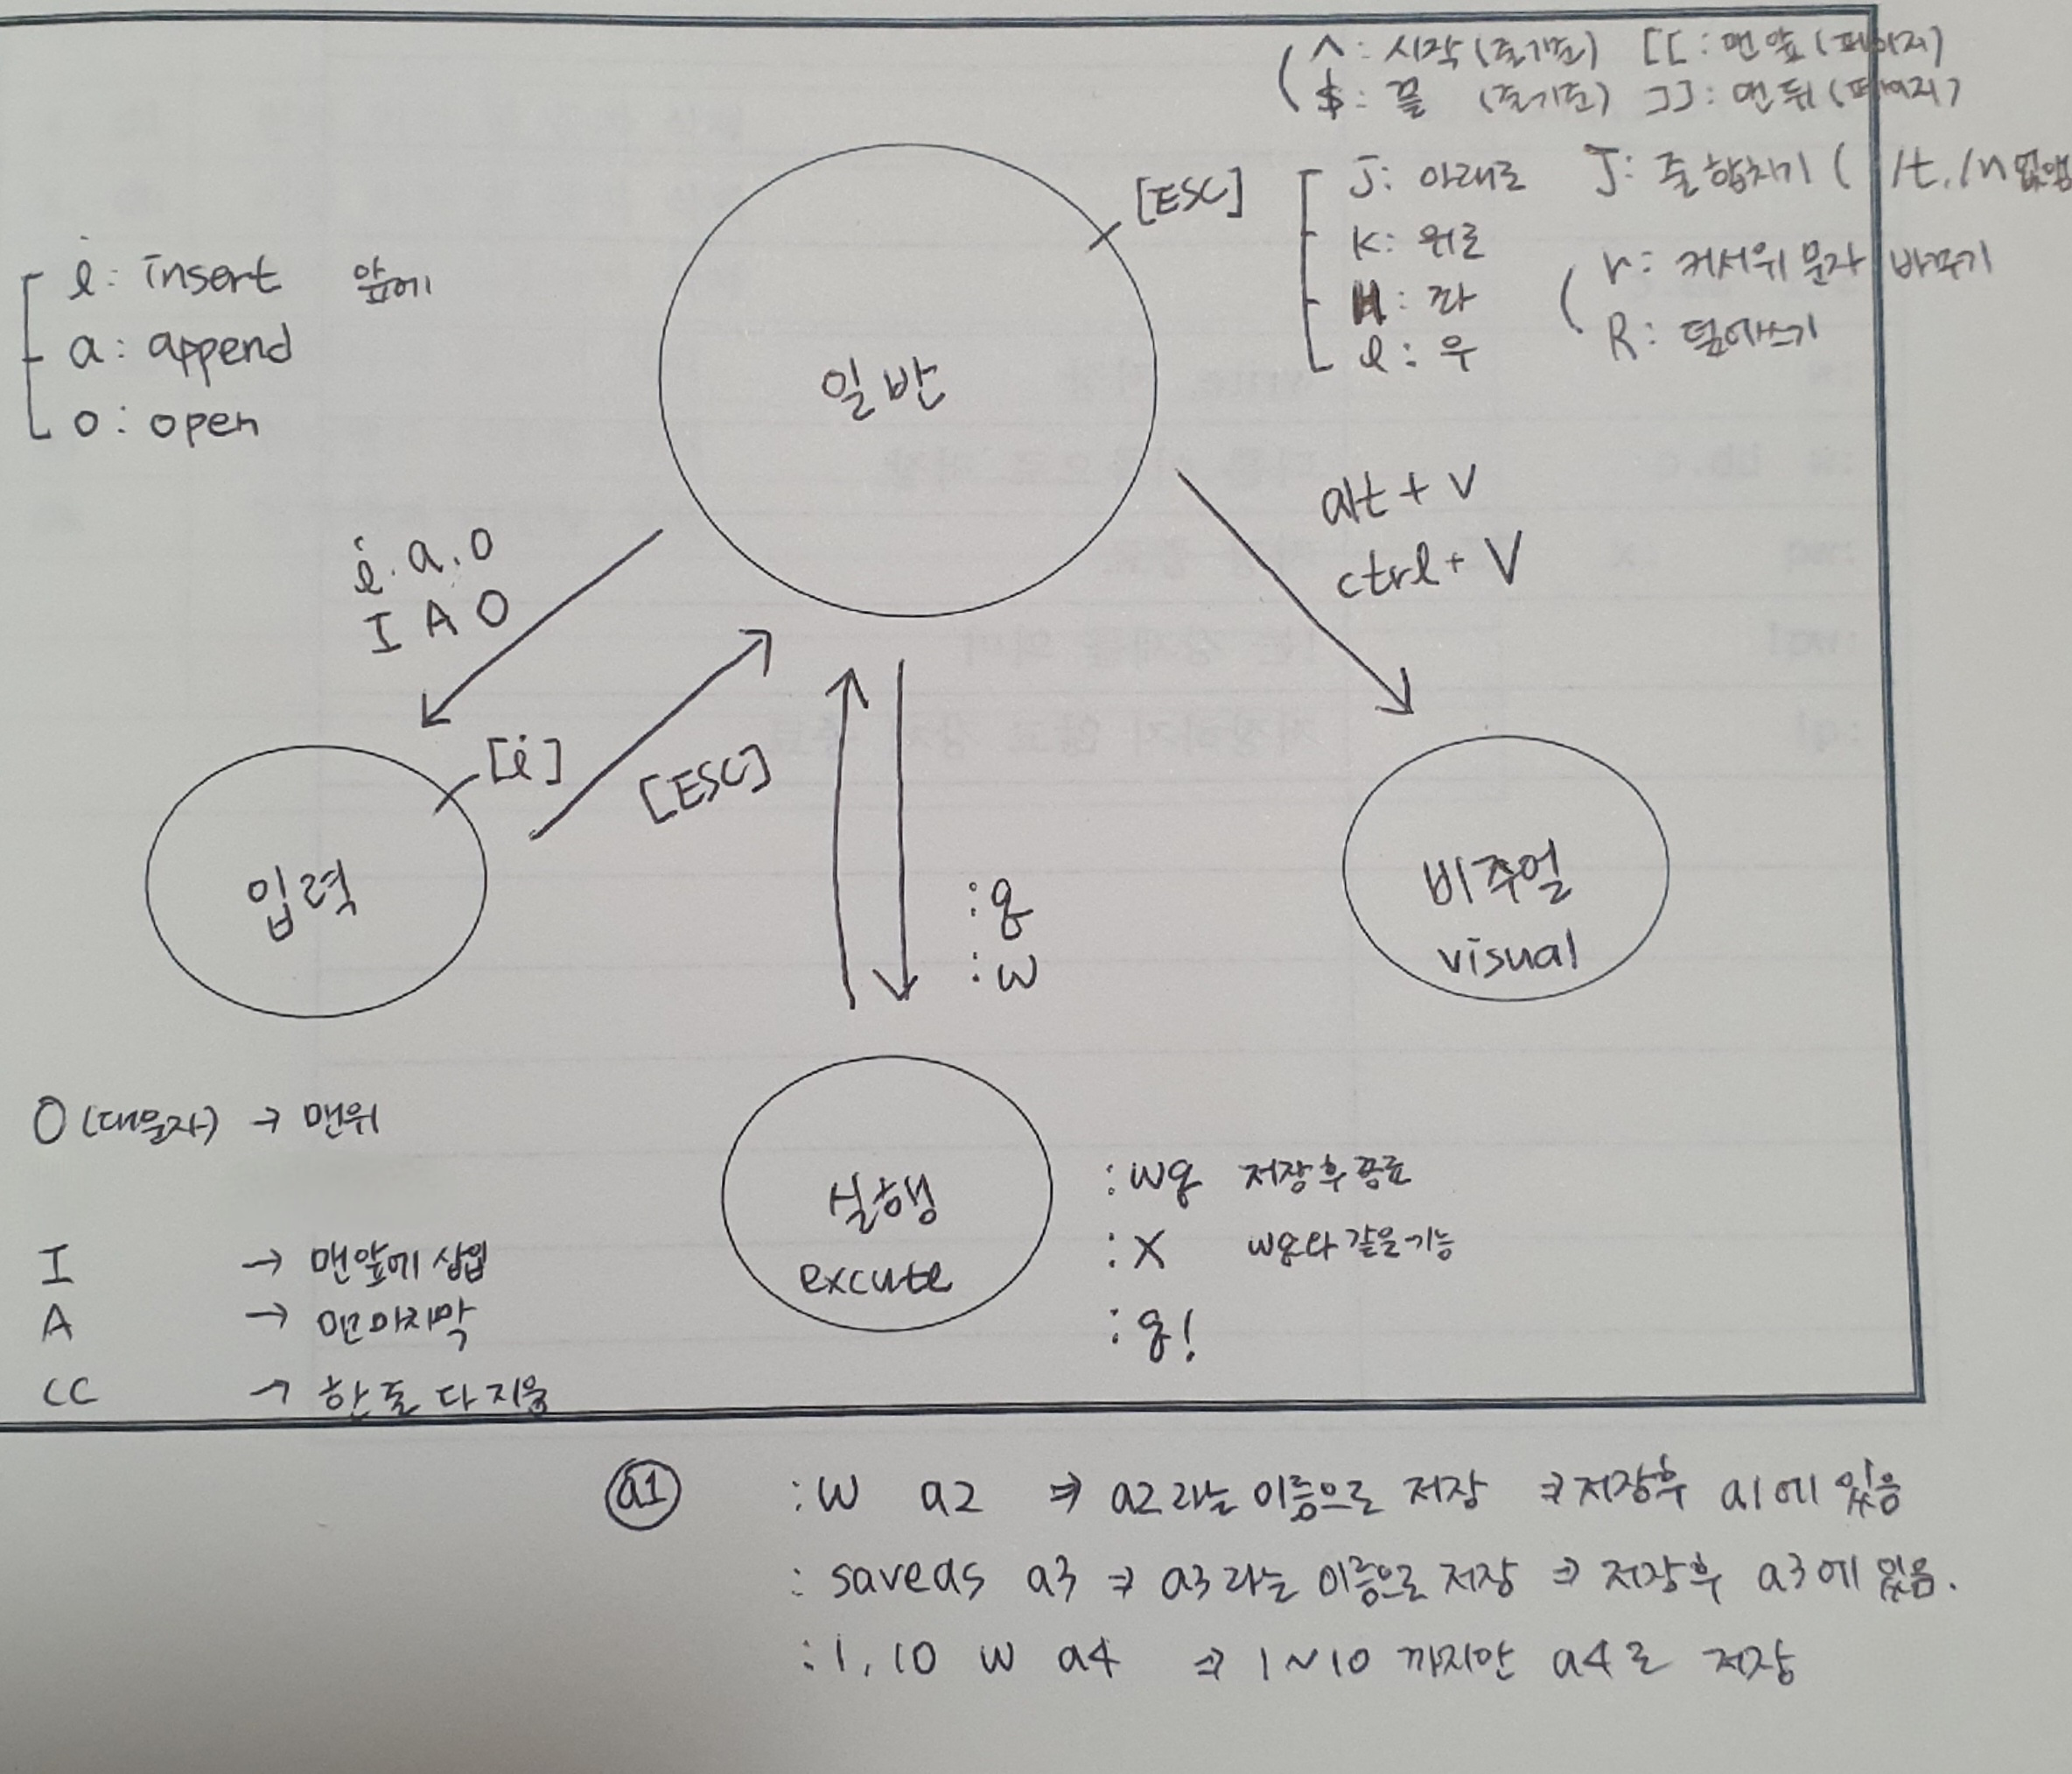 ^: 시작 (줄기준) [[: 맨앞 (페이지)
$: 끝 (줄기준) ]]: 맨뒤 (페이지)
[ESC]
J: 아래로
K: 위로
H: 좌
l: 우
J: 줄합치기 ( /t, /n 없앰
r: 커서위 문자 바꾸기
R: 덮어쓰기
i: insert 앞에
a: append
o: open
일반
i. a. o
I A O
alt + v
ctrl + V
[i]
[ESC]
입력
:q
:w
비주얼
visual
O (대문자) → 맨위
I → 맨앞에 삽입
A → 맨마지막
CC → 한 줄 다 지움
실행
excute
:wq 저장후종료
:x wq와 같은기능
:q!
a1
:w a2 ⇒ a2라는 이름으로 저장 ⇒ 저장후 a1에 있음
: saveas a3 ⇒ a3라는 이름으로 저장 ⇒ 저장후 a3에 있음.
:1, 10 w a4 ⇒ 1~10 까지만 a4로 저장